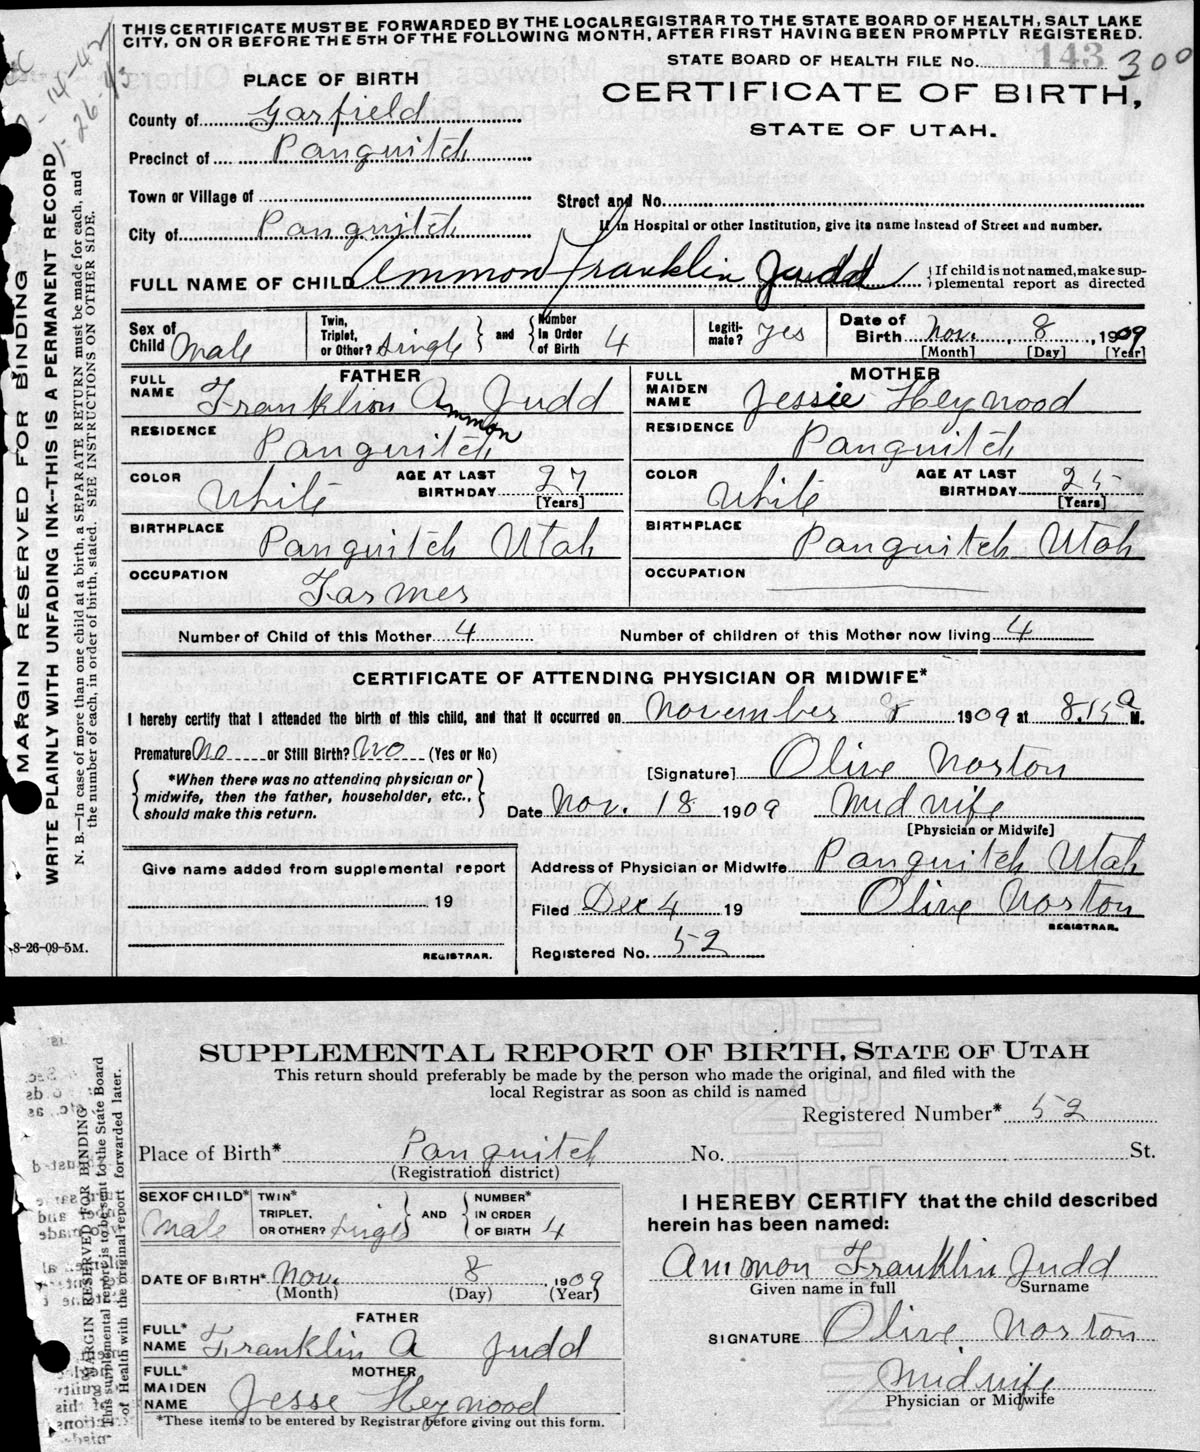 THIS CERTIFICATE MUST BE FORWARDED BY THE LOCAL REGISTRAR TO THE STATE BOARD OF HEALTH, SALT LAKE
CITY, ON OR BEFORE THE 5TH OF THE FOLLOWING MONTH, AFTER FIRST HAVING BEEN PROMPTLY REGISTERED.
STATE BOARD OF HEALTH FILE No. 143 300
PLACE OF BIRTH
CERTIFICATE OF BIRTH,
STATE OF UTAH.
County of Garfield
Precinct of Panguitch
Town or Village of
Street and No.
City of Panguitch
If in Hospital or other Institution, give its name instead of Street and number.
FULL NAME OF CHILD Ammon Franklin Judd
If child is not named, make sup-
plemental report as directed
Sex of Child Male
Twin, Triplet, or Other? Single and Number in Order of Birth 4
Legiti-mate? Yes
Date of Birth Nov. 8, 1909
[Month] [Day] [Year]
FATHER
FULL NAME Franklion Ammon Judd
RESIDENCE Panguitch
COLOR White
AGE AT LAST BIRTHDAY 27 [Years]
BIRTHPLACE Panguitch Utah
OCCUPATION Farmer
MOTHER
FULL MAIDEN NAME Jessie Heywood
RESIDENCE Panguitch
COLOR White
AGE AT LAST BIRTHDAY 25 [Years]
BIRTHPLACE Panguitch Utah
OCCUPATION
Number of Child of this Mother 4
Number of children of this Mother now living 4
CERTIFICATE OF ATTENDING PHYSICIAN OR MIDWIFE*
I hereby certify that I attended the birth of this child, and that it occurred on November 8 1909 at 8.15 a M.
Premature No or Still Birth? No (Yes or No)
*When there was no attending physician or
midwife, then the father, householder, etc.,
should make this return.
[Signature] Olive Norton
Date Nov. 18 1909 Midwife
[Physician or Midwife]
Give name added from supplemental report
19
REGISTRAR.
Address of Physician or Midwife Panguitch Utah
Filed Dec 4 19 Olive Norton
REGISTRAR.
Registered No. 52
8-26-09-5M.
MARGIN RESERVED FOR BINDING
WRITE PLAINLY WITH UNFADING INK--THIS IS A PERMANENT RECORD
N. B.—In case of more than one child at a birth, a SEPARATE RETURN must be made for each, and
the number of each, in order of birth, stated. SEE INSTRUCTIONS ON OTHER SIDE.
SUPPLEMENTAL REPORT OF BIRTH, STATE OF UTAH
This return should preferably be made by the person who made the original, and filed with the
local Registrar as soon as child is named
Registered Number* 52
Place of Birth* Panguitch No. St.
(Registration district)
SEX OF CHILD* Male
TWIN* TRIPLET, OR OTHER? Single AND NUMBER* IN ORDER OF BIRTH 4
DATE OF BIRTH* Nov. 8, 1909
(Month) (Day) (Year)
FATHER
FULL* NAME Franklin A Judd
MOTHER
FULL* MAIDEN NAME Jesse Heywood
*These items to be entered by Registrar before giving out this form.
I HEREBY CERTIFY that the child described
herein has been named:
Ammon Franklin Judd
Given name in full Surname
SIGNATURE Olive Norton
Midwife
Physician or Midwife
MARGIN RESERVED FOR BINDING
This supplemental report is to be sent to the State Board
of Health with the original report forwarded later.